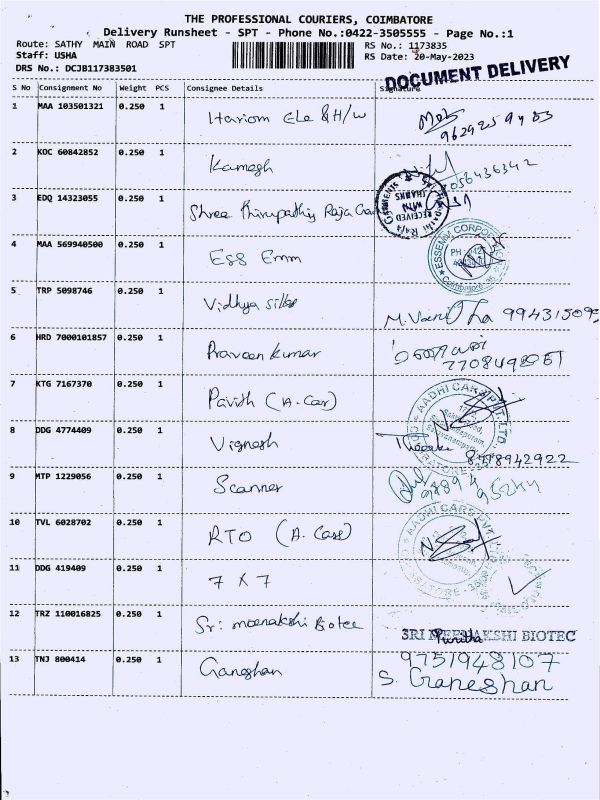 THE PROFESSIONAL COURIERS, COIMBATORE
Delivery Runsheet - SPT - Phone No.:0422-3505555 - Page No.:1
Route: SATHY MAIN ROAD SPT
RS No.: 1173835
Staff: USHA
RS Date: 20-May-2023
DRS No.: DCJB117383501
DOCUMENT DELIVERY
S No Consignment No Weight PCS Consignee Details Signature
1 MAA 103501321 0.250 1 Hariom Ele & H/w
2 KOC 60842852 0.250 1 Kamesh
3 EDQ 14323055 0.250 1 Shree Thirupathiy Raja
RECEIVED
THANKS
4 MAA 569940500 0.250 1 Ess Emm
ESSEMM CORPORATION
Coimbatore
5 TRP 5098746 0.250 1 Vidhya silks
6 HRD 7000101857 0.250 1 Praveen kumar
7 KTG 7167370 0.250 1 Pavith (A. Car)
AADHI CARS PVT. LTD.
8 DDG 4774409 0.250 1 Vignesh
8778942922
9 MTP 1229056 0.250 1 Scanner
10 TVL 6028702 0.250 1 RTO (A. Case)
AADHI CARS PVT
11 DDG 419409 0.250 1 7 X 7
12 TRZ 110016825 0.250 1 Sri meenakshi Biotec
SRI MEENAKSHI BIOTEC
Punitha
13 TNJ 800414 0.250 1 Ganeshan
9751948107
S. Ganeshan